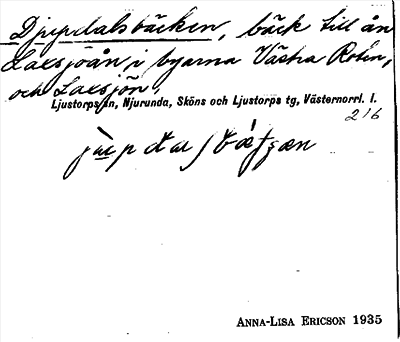 Djupdalsbäcken, bäck till ån
Laxsjöån i byarna Västra Rotin,
och Laxsjön,
Ljustorps sn, Njurunda, Sköns och Ljustorps tg, Västernorrl. l.
216
ANNA-LISA ERICSON 1935